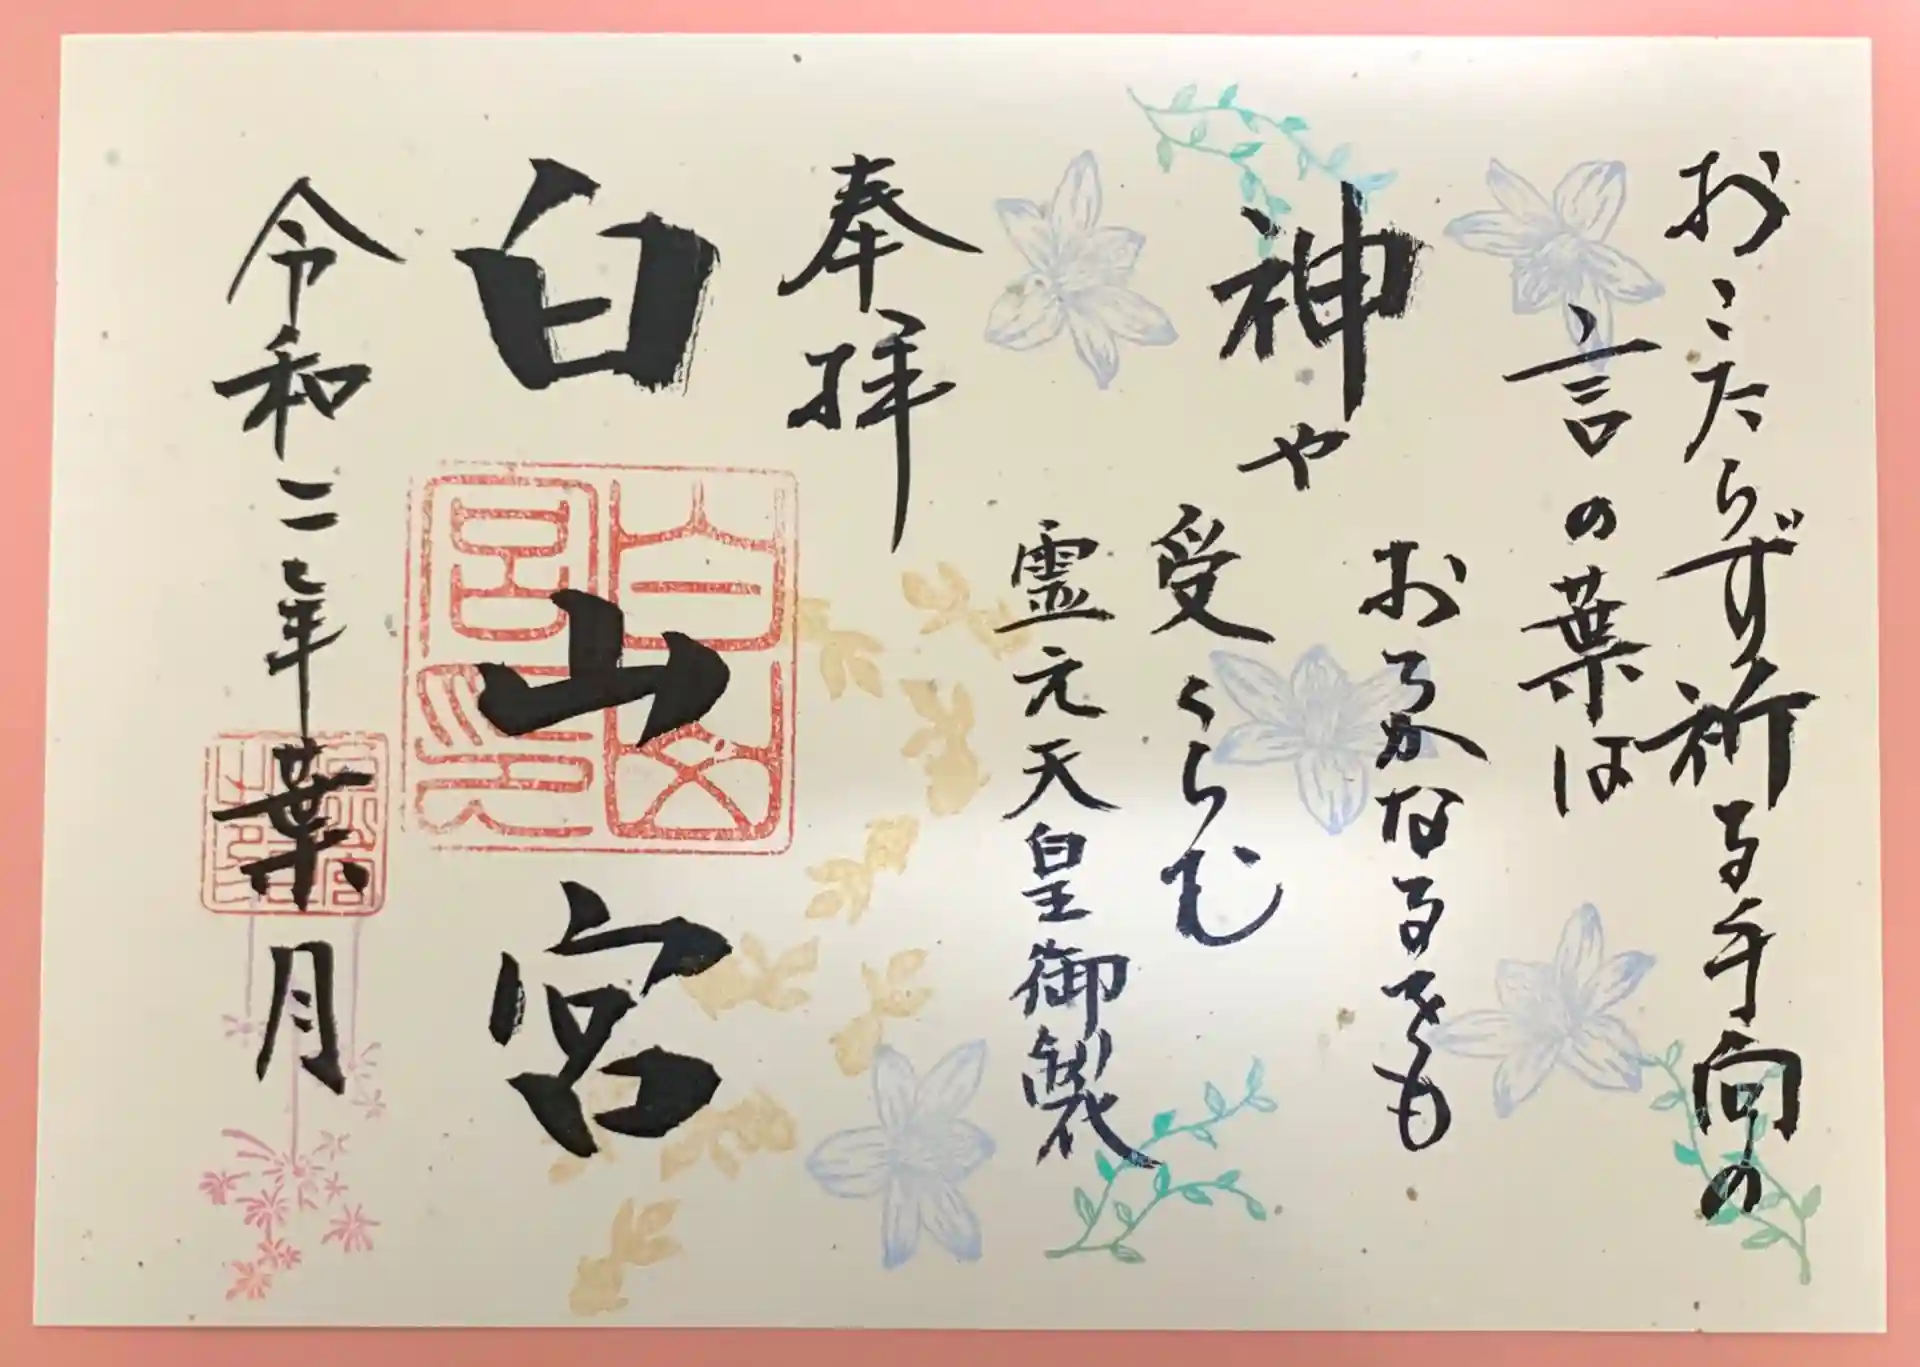 おこたらず祈る手向の
言の葉は
おろかなるをも
神や
受くらむ
霊元天皇御製
奉拝
白山宮
令和二年葉月